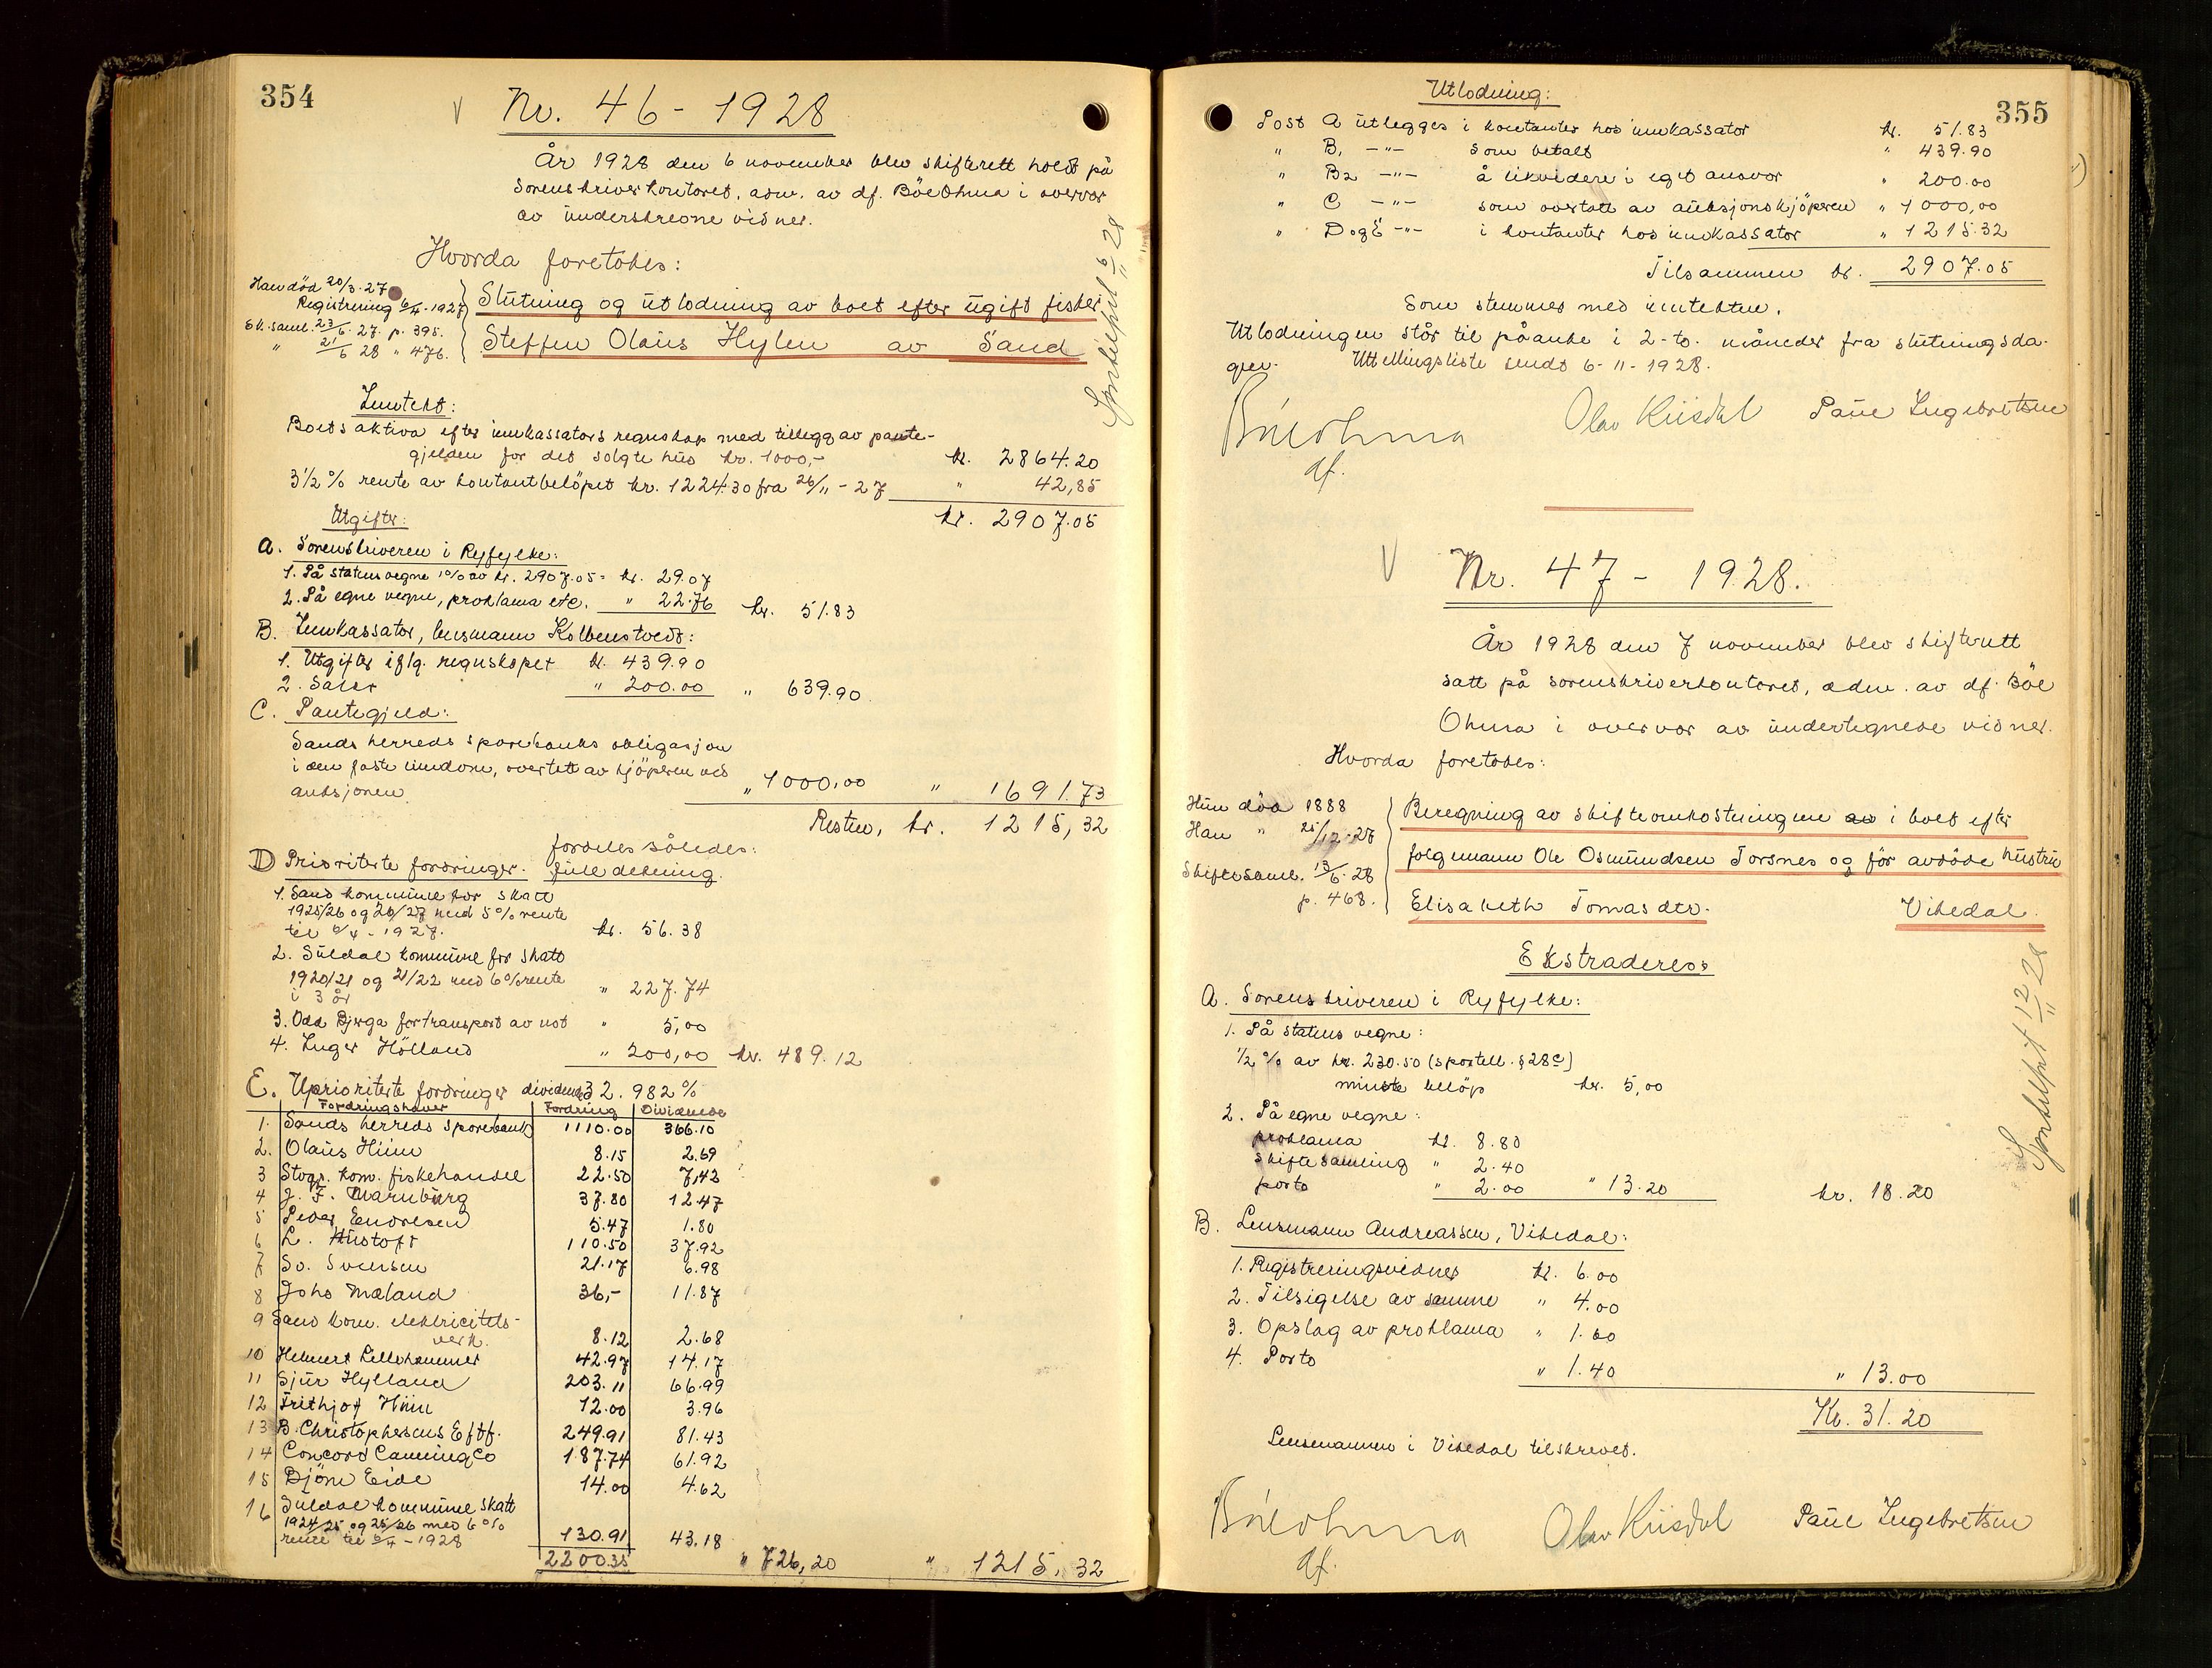 354
Nr. 46 - 1928
År 1928 den 6 november blev skifterett holdt på
sorenskriverkontoret, adm. av df. Böe Ohma i overvær
av underskrevne vidner.
Hvorda foretokes:
Han död 20/3-27
Registrering 6/4-1927
Sk. saml. 23/6-27. p. 395.
" 21/6 28 " 476.
Slutning og utlodning av boet efter ugift fisker
Steffen Olaus Hylen av Sand
Inntekt:
Boets aktiva efter innkassators regnskap med tillegg av pante-
gjelden for det solgte hus kr. 1000,- kr. 2864.20
3 1/2 % rente av kontantbelöpet kr. 1224.30 fra 26/11 - 27 " 42,85
kr. 2907.05
Utgifter:
A. Sorenskriveren i Ryfylke:
1. På statens vegne 1% av kr. 2907.05 = kr. 29.07
2. På egne vegne, proklama etc. " 22.76 kr. 51.83
B. Innkassator, lensmann Kolbenstvedt:
1. Utgifter iflg. regnskapet kr. 439.90
2. Salær " 200.00 " 639.90
C. Pantegjeld:
Sands herreds sparebanks obligasjon
i den faste eiendom, overtatt av kjöperen ved
auksjonen " 1000,00 " 1691.73
Resten, kr. 1215,32
fordeles således:
D Prioriterte fordringer. full dekning.
1. Sand kommune for skatt
1925/26 og 26/27 med 5% rente
til 6/4 - 1927. kr. 56.38
2. Suldal kommune for skatt
1920/21 og 21/22 med 6% rente
i 3 år " 227.74
3. Odd Bjerga for transport av not " 5,00
4. Inger Hölland " 200,00 kr. 489.12
E. Uprioriterte fordringer dividende 32.982 %
Fordringshaver Fordring Dividende
1. Sands herreds sparebank 1110.00 366.10
2. Olaus Hiim 8.15 2.69
3 Stvgr. kom. fiskehandel 22.50 7,43
4 J. F. Warnburg 37.80 12.47
5 Peder Endresen 5.47 1.80
6 L. Hustoft 110.50 37.92
7 Sv. Svensen 21.17 6.98
8 Johs Mæland 36,- 11.87
9 Sand kom. elektricitets-
verk. 8.12 2.68
10 Helmert Lillehammer 42.97 14.17
11 Sjur Hylland 203.11 66.99
12 Frithjof Hiim 12.00 3.96
13 B. Christophersens Eftf. 249.91 81.43
14 Concord Canning Co 187.74 61.92
15 Björn Eide 14.00 4.62
16 Suldal kommune skatt
1924/25 og 25/26 med 6%
rente til 6/4 - 1928 130.91 43.18
2200.35 " 726,20 " 1215,32
355
Utlodning:
Post A utlegges i kontanter hos innkassator kr. 51.83
" B1 -"- som betalt " 439.90
" B2 -"- å likvidere i eget ansvar " 200.00
" C -"- som overtatt av auksjonskjöperen " 1000,00
" D og E -"- i kontanter hos innkassator " 1215.32
Tilsammen kr. 2907.05
Som stemmer med inntekten.
Utlodningen står til påanke i 2-to. måneder fra slutningsda-
gen. Uttellingsliste sendt 6-11-1928.
Böe Ohma Olav Kiisdal Paul Ingebretsen
df.
Nr. 47 - 1928.
År 1928 den 7 november blev skifterett
satt på sorenskriverkontoret, adm. av df. Böe
Ohma i overvær av undertegnede vidner.
Hvorda foretokes:
Hun död 1888
Han " 25/12-27
Skiftesaml. 13/6-28
p. 468.
Beregning av skifteomkostningene av i boet efter
folgemann Ole Osmundsen Torsnes og för avdöde hustru
Elisabeth Tomasdtr. Vikedal.
Ekstraderes:
A. Sorenskriveren i Ryfylke:
1. På statens vegne:
1/2 % av kr. 230.50 (sportell. § 28 c)
minste belöp kr. 5,00
2. På egne vegne:
proklama kr. 8.80
skiftesamling " 2.40
porto " 2.00 " 13.20 kr. 18.20
B. Lensmann Andreassen, Vikedal:
1. Registreringsvidner kr. 6.00
2. Tilsigelse av samme " 4.00
3. Opslag av proklama " 1.60
4. Porto " 1.40 " 13.00
Kr. 31.20
Lensmannen i Vikedal tilskrevet.
Böe Ohma Olav Kiisdal Paul Ingebretsen
df.